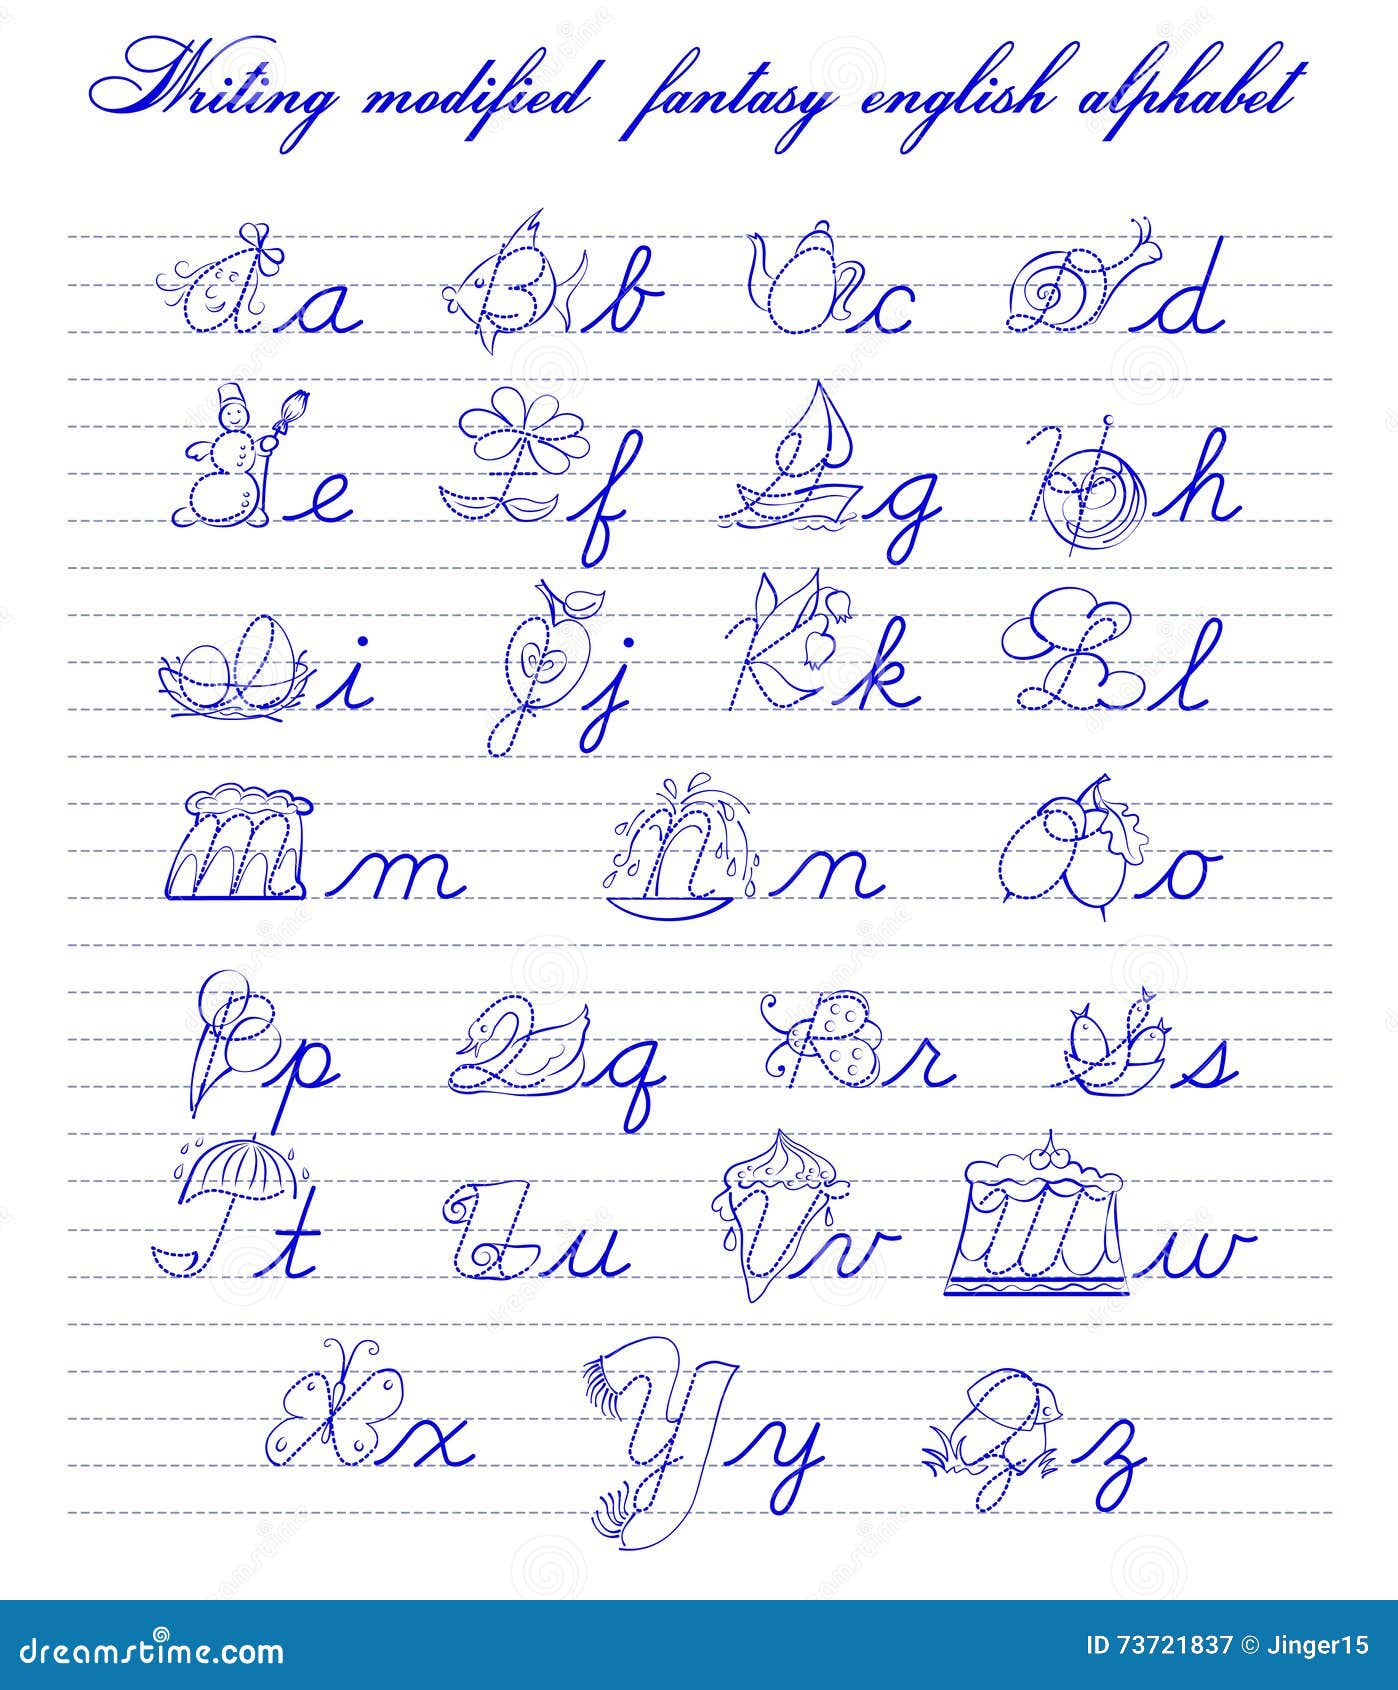 Writing modified fantasy english alphabet
A a B b C c D d
E e F f G g H h
I i J j K k L l
M m N n O o
P p Q q R r S s
T t U u V v W w
X x Y y Z z
dreamstime.com ID 73721837 © Jinger15